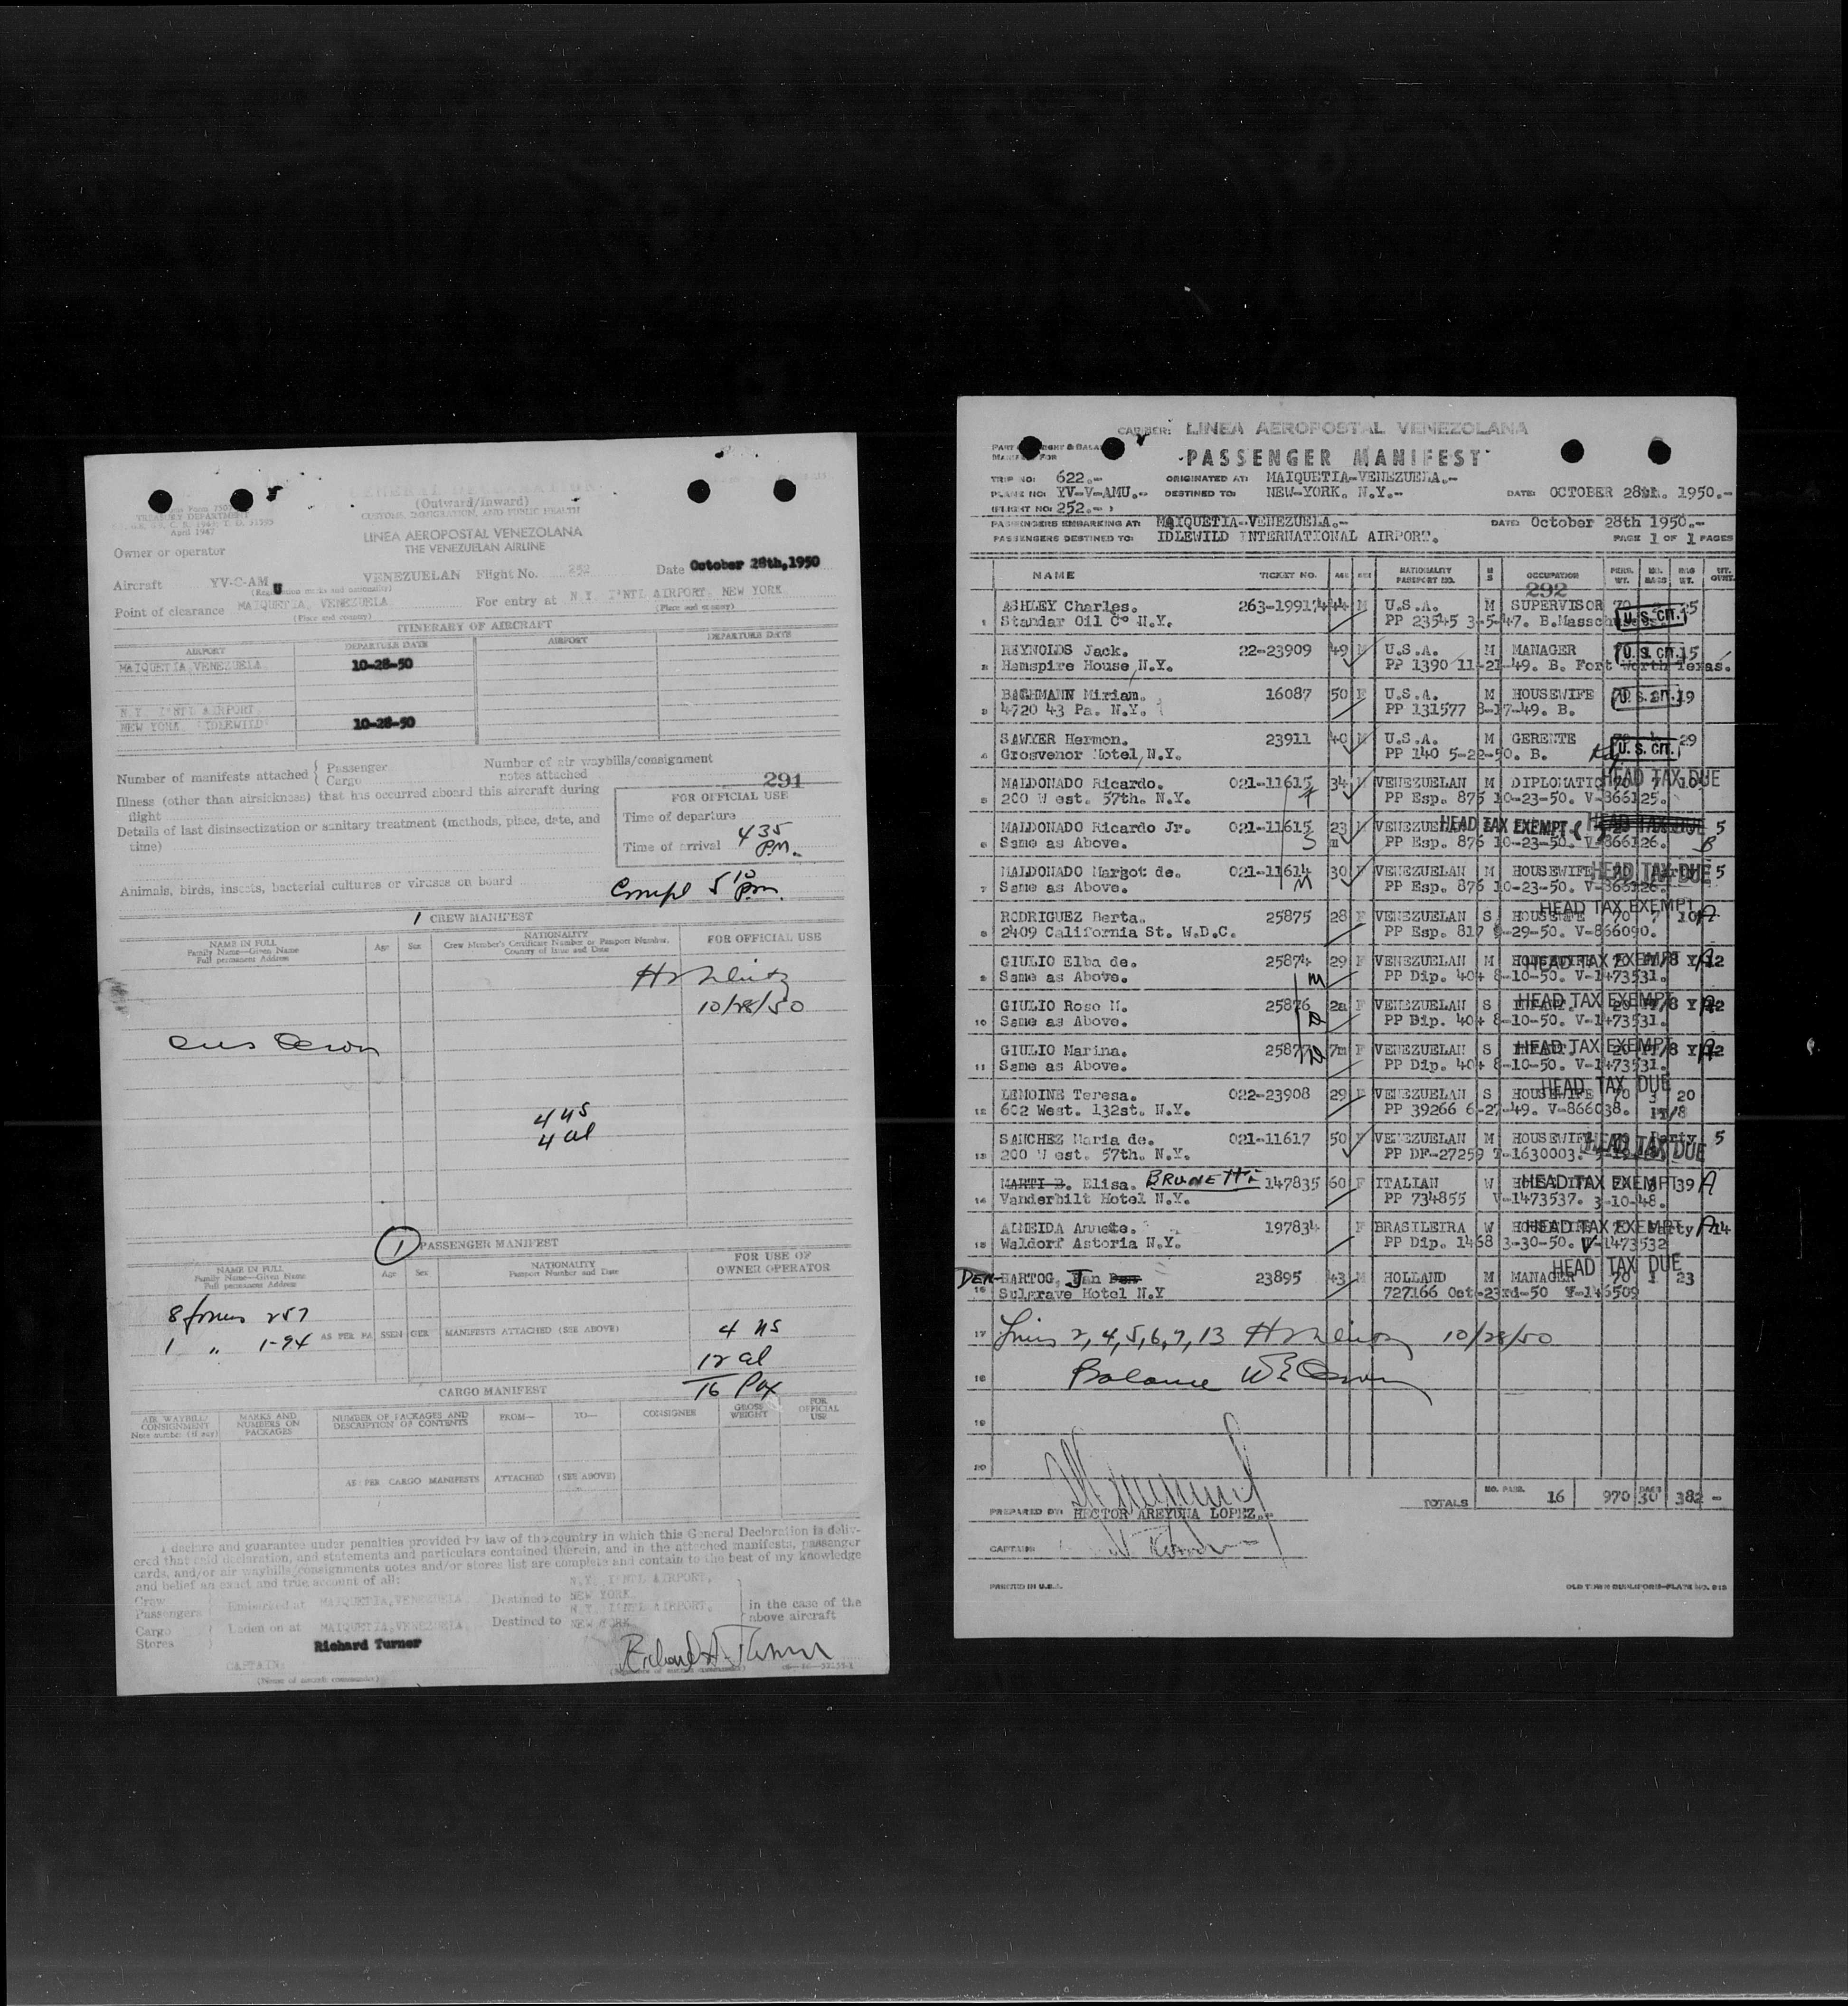 GENERAL DECLARATION
(Outward/Inward)
CUSTOMS, IMMIGRATION, AND PUBLIC HEALTH
TREASURY DEPARTMENT
April 1947
LINEA AEROPOSTAL VENEZOLANA
THE VENEZUELAN AIRLINE
Owner or operator
Aircraft YV-C-AMU VENEZUELAN Flight No. 252 Date October 28th,1950
Point of clearance MAIQUETIA, VENEZUELA For entry at N.Y. INT'L AIRPORT, NEW YORK
(Place and country) (Place and country)
ITINERARY OF AIRCRAFT
AIRPORT DEPARTURE DATE AIRPORT DEPARTURE DATE
MAIQUETIA, VENEZUELA 10-28-50
N.Y. INT'L AIRPORT,
NEW YORK "IDLEWILD" 10-28-50
Number of manifests attached { Passenger Cargo Number of air waybills/consignment notes attached
291
Illness (other than airsickness) that has occurred aboard this aircraft during flight
Details of last disinsectization or sanitary treatment (methods, place, date, and time)
FOR OFFICIAL USE
Time of departure
Time of arrival 4 35 P.M.
Animals, birds, insects, bacterial cultures or viruses on board
Compl 5 10 P.m.
1 CREW MANIFEST
NAME IN FULL Age Sex NATIONALITY FOR OFFICIAL USE
Family Name—Given Name Crew Member's Certificate Number or Passport Number,
Full permanent Address Country of Issue and Date
10/28/50
4 US
4 al
1 PASSENGER MANIFEST
NAME IN FULL Age Sex NATIONALITY FOR USE OF
Family Name—Given Name Passport Number and Date OWNER OPERATOR
Full permanent Address
8 forms 257
1 " 1-94 AS PER PASSENGER MANIFESTS ATTACHED (SEE ABOVE) 4 US
12 al
16 Pax
CARGO MANIFEST
AIR WAYBILL/ CONSIGNMENT Note number (if any) MARKS AND NUMBERS ON PACKAGES NUMBER OF PACKAGES AND DESCRIPTION OF CONTENTS FROM— TO— CONSIGNER GROSS WEIGHT FOR OFFICIAL USE
AS PER CARGO MANIFESTS ATTACHED (SEE ABOVE)
I declare and guarantee under penalties provided by law of the country in which this General Declaration is deliv-
ered that said declaration, and statements and particulars contained therein, and in the attached manifests, passenger
cards, and/or air waybills/consignments notes and/or stores list are complete and contain to the best of my knowledge
and belief an exact and true account of all:
Crew Passengers } Embarked at MAIQUETIA, VENEZUELA Destined to N.Y. INT'L AIRPORT, NEW YORK } in the case of the above aircraft
Cargo Stores } Laden on at MAIQUETIA, VENEZUELA Destined to N.Y. INT'L AIRPORT, NEW YORK
Richard Turner
CAPTAIN:
(Name of aircraft commander)
CARRIER: LINEA AEROPOSTAL VENEZOLANA
PASSENGER MANIFEST
TRIP NO: 622.- ORIGINATED AT: MAIQUETIA-VENEZUELA.-
PLANE NO: YV-V-AMU.- DESTINED TO: NEW-YORK. N.Y.- DATE: OCTOBER 28th. 1950.-
(FLIGHT NO: 252.- )
PASSENGERS EMBARKING AT: MAIQUETIA-VENEZUELA.- DATE: October 28th 1950.-
PASSENGERS DESTINED TO: IDLEWILD INTERNATIONAL AIRPORT. PAGE 1 OF 1 PAGES
NAME TICKET NO. AGE SEX NATIONALITY PASSPORT NO. M S OCCUPATION PERS. WT. NO. BAGS BAG WT.
292
1 ASHLEY Charles. 263-19917 44 M U.S.A. M SUPERVISOR 70 25 U.S. CIT.
Standar Oil Co N.Y. PP 23545 3-5-47.
2 REYNOLDS Jack. 22-23909 49 M U.S.A. M MANAGER 15 U.S. CIT.
Hamspire House, N.Y. PP 1390 11-21-49. B. Fort Worth Texas.
3 BACHMANN Miriam. 16087 50 F U.S.A. M HOUSEWIFE 19 U.S. CIT.
4720 43 Pa. N.Y. PP 131577 8-17-49. B.
4 SAWYER Hermon. 23911 40 M U.S.A. M GERENTE 29 U.S. CIT.
Grosvenor Hotel, N.Y. PP 140 5-22-50. B.
5 MALDONADO Ricardo. 021-11615 34 M VENEZUELAN M DIPLOMATIC HEAD TAX DUE
200 West. 57th. N.Y. PP Esp. 875 10-23-50. V-866125.
6 MALDONADO Ricardo Jr. 021-11615 23 HEAD TAX EXEMPT HEAD TAX DUE 5
Same as Above. S m PP Esp. 876 10-23-50. V-866126. B
7 MALDONADO Margot de. 021-11614 30 F VENEZUELAN M HOUSEWIFE HEAD TAX DUE 5
Same as Above. M PP Esp. 876 10-23-50. V-866126.
HEAD TAX EXEMPT
8 RODRIGUEZ Berta. 25875 28 F VENEZUELAN S 70 7 10 A
2409 California St. W.D.C. PP Esp. 817 9-29-50. V-866090.
9 GIULIO Elba de. 25874 29 F VENEZUELAN M HEAD TAX EXEMPT
Same as Above. M PP Dip. 404 8-10-50. V-1473531.
10 GIULIO Rose M. 25876 2a F VENEZUELAN S HEAD TAX EXEMPT
Same as Above. PP Dip. 404 8-10-50. V-1473531.
11 GIULIO Marina. 25877 7m F VENEZUELAN S HEAD TAX EXEMPT
Same as Above. PP Dip. 404 8-10-50. V-1473531.
HEAD TAX DUE
12 LEMOINE Teresa. 022-23908 29 F VENEZUELAN S HOUSEWIFE 70 3 20
602 West. 132st. N.Y. PP 39266 6-27-49. V-866038.
13 SANCHEZ Maria de. 021-11617 50 F VENEZUELAN M HOUSEWIFE Party 5 HEAD TAX DUE
200 West. 57th. N.Y. PP DF-27259 T-1630003.
14 MARTI B. Elisa. BRUNETTI 147835 60 F ITALIAN W HEAD TAX EXEMPT 39 A
Vanderbilt Hotel N.Y. PP 734855 V-1473537. 3-10-48.
15 ALMEIDA Annette. 19783 F BRASILEIRA W HEAD TAX EXEMPT A 14
Waldorf Astoria N.Y. PP Dip. 1468 3-30-50. V-1473532
HEAD TAX DUE
16 DEN HARTOG, Jan Den 23895 43 M HOLLAND M MANAGER 70 1 23
Sulgrave Hotel N.Y 727166 Oct-23rd-50
17 Lines 2, 4, 5, 6, 7, 13 10/28/50
18 Balance
19
20
TOTALS NO. PASS. 16 970 BAGS 30 382 -
PREPARED BY: HECTOR AREYUNA LOPEZ.-
CAPTAIN:
PRINTED IN U.S.A.